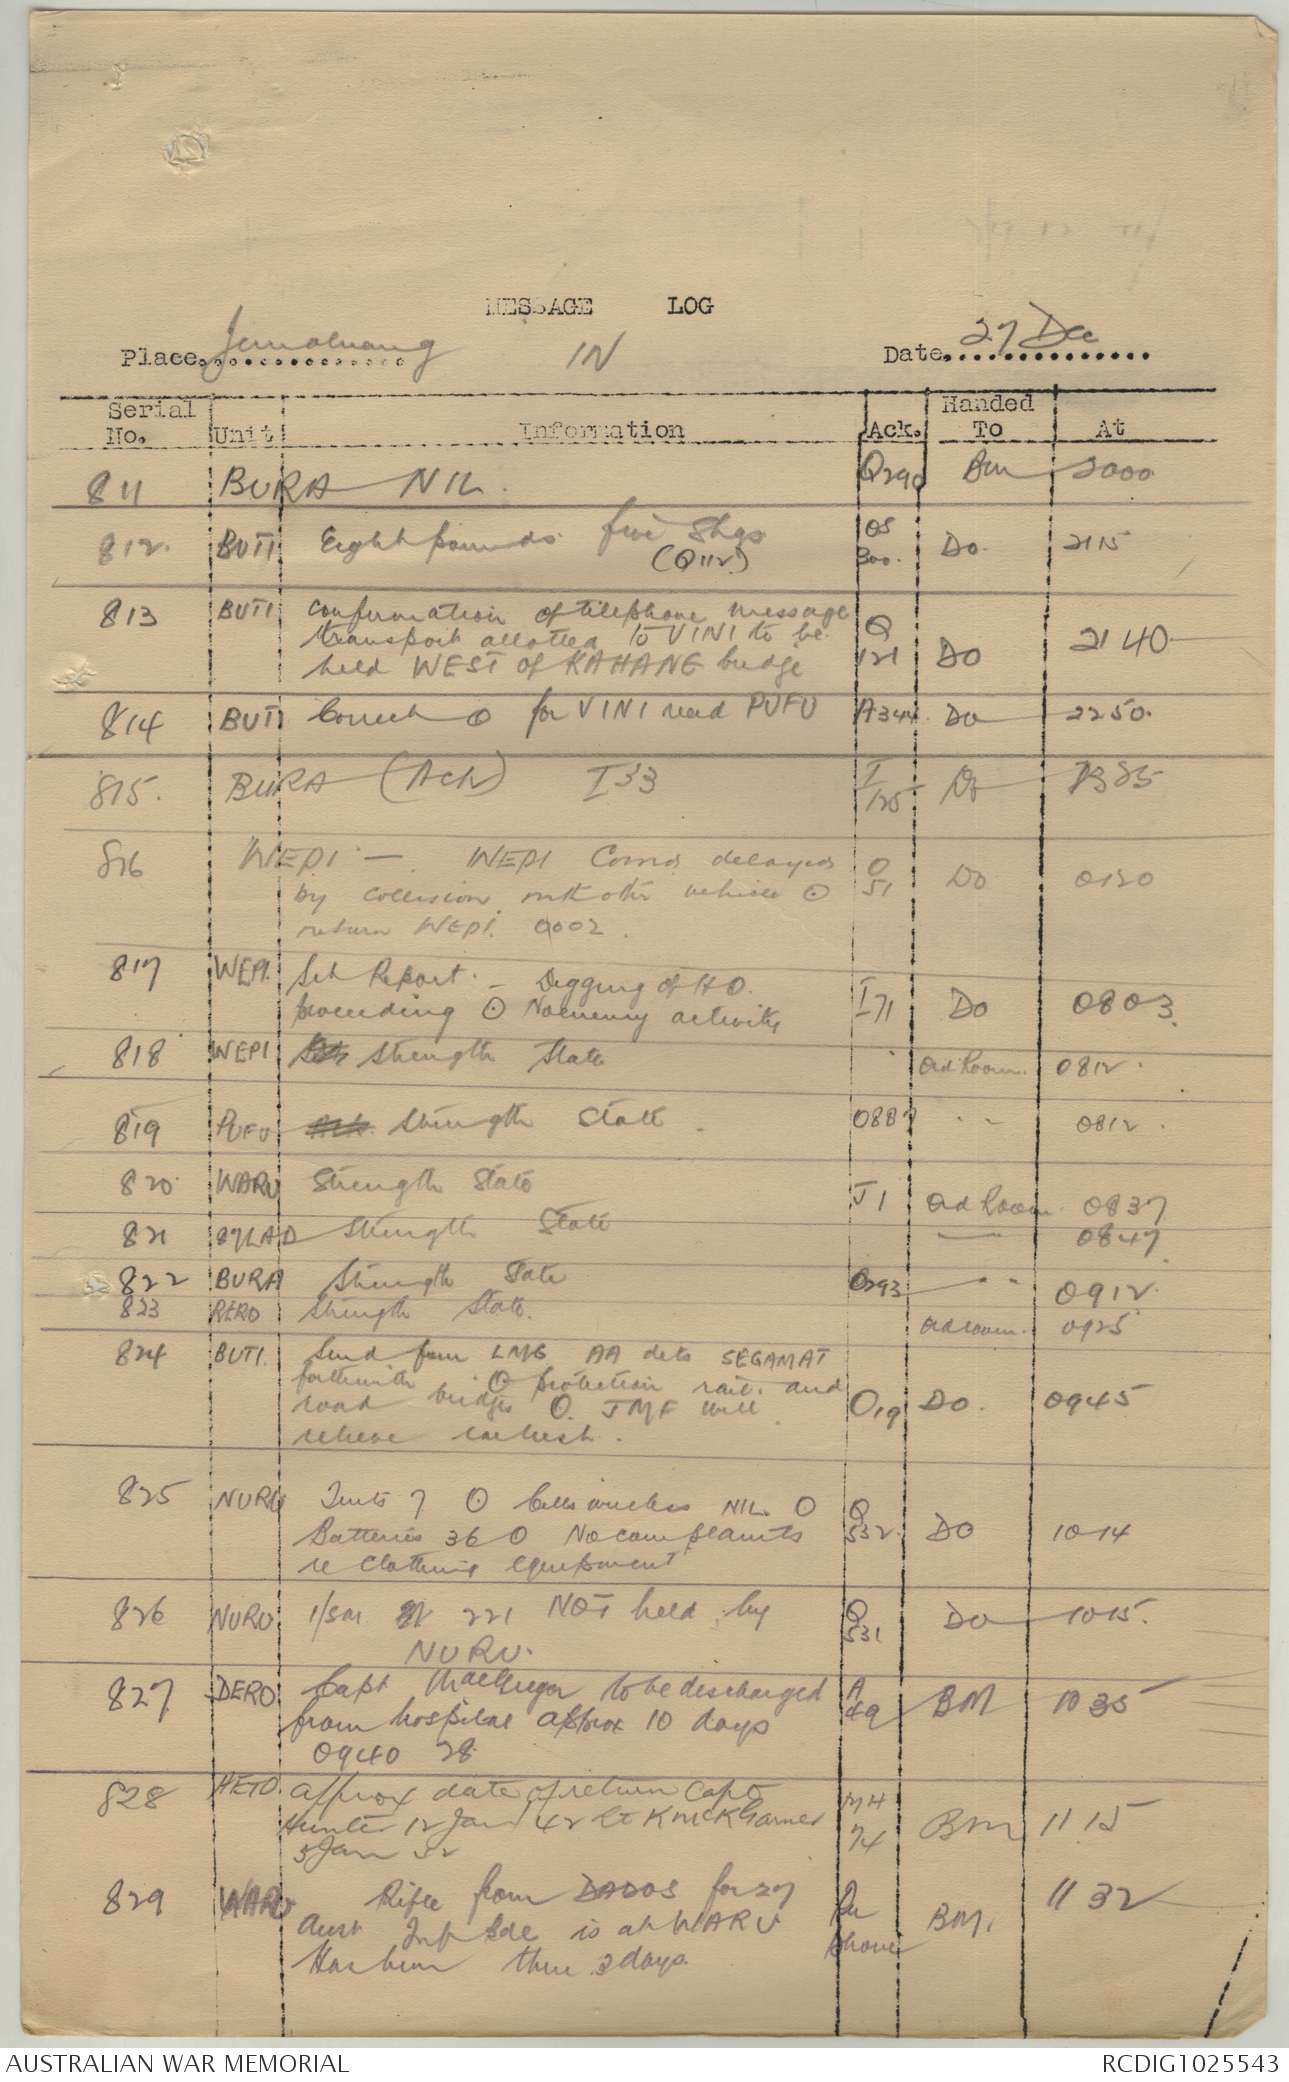 MESSAGE LOG
Place Jemaluang IN Date 27 Dec
Serial No. Unit Information Ack. Handed To At
811 BURA NIL. Q290 BM 2000
812. BUTI Eight pounds five Shgs OS Do. 2115
(Q112) 300.
813 BUTI Confirmation of telephone message
transport allotted to VINI to be Q 2140
held WEST of KAHANE bridge 121 Do
814 BUTI Correct ʘ for VINI read PUFU A344. Do 2250.
815. BURA (Ack) I33 I Do
125
816 WEPI — WEPI Comd delayed O Do 0120
by collision with other vehicle ʘ 51
return WEPI 0002.
817 WEPI. Sit Report. – Digging of HQ.
proceeding ʘ No enemy activity I71 Do 0803.
818 WEPI Strength State Ord Room. 0812.
819 PUFU Strength State. O887 " 0812.
820 WARU Strength State J1 Ord Room. 0837
821 87LAD Strength State " 0847.
822 BURA Strength State O293 " 0912.
823 RERO Strength State. Ord room. 0925
824 BUTI. Send four LMG AA dets SEGAMAT
forthwith ʘ protection rail. and
road bridges O. JMF will O19 Do. 0945
relieve earliest.
825 NURU Tents 7 ʘ Cells wireless NIL. O Q
Batteries 36 O No complaints 532. DO 1014
re clothing equipment
826 NURU 221 NOT held by Q Do 1015.
NURU. 531
827 DERO Capt MacGregor to be discharged A BM 1035
from hospital approx 10 days 49
0940 28
828 HETO. approx date of return Capt
Hunter 12 Jan 42 Lt K McK Garner BM 1115
5 Jan 74
829 WARU Rifle from DADOS for 27 Per 1132
Aust Inf Bde is at WARU phone BM.
Has been there 3 days.
AUSTRALIAN WAR MEMORIAL RCDIG1025543